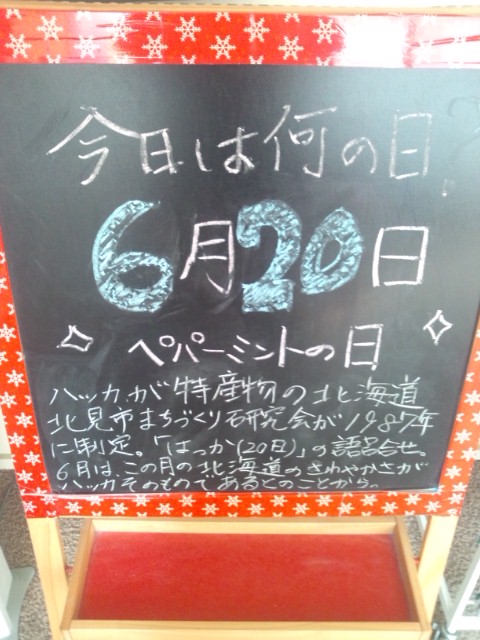 今日は何の日?
6月20日
ペパーミントの日
ハッカが特産物の北海道
北見市まちづくり研究会が1987年
に制定。「はっか(20日)」の語呂合せ。
6月は、この月の北海道のさわやかさが
ハッカそのものであるとのことから。